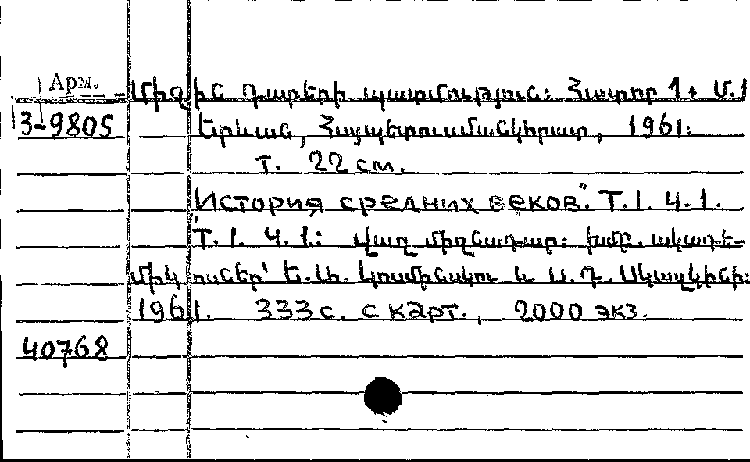 Арм.
Միջին դարերի պատմություն: Հատոր 1: Մ.1
3-9805
Երևան, Հայպետուսմանկհրատ, 1961:
т. 22 см.
"История средних веков". Т.1. Ч.1.
Т.1. Ч.1: Վաղ միջնադար: խմբ. ակադե-
միկոսներ՝ Ե.Ա. Կոսմինսկու և Ս.Դ. Սկազկինի:
1961. 333 с. с карт., 2000 экз.
40768